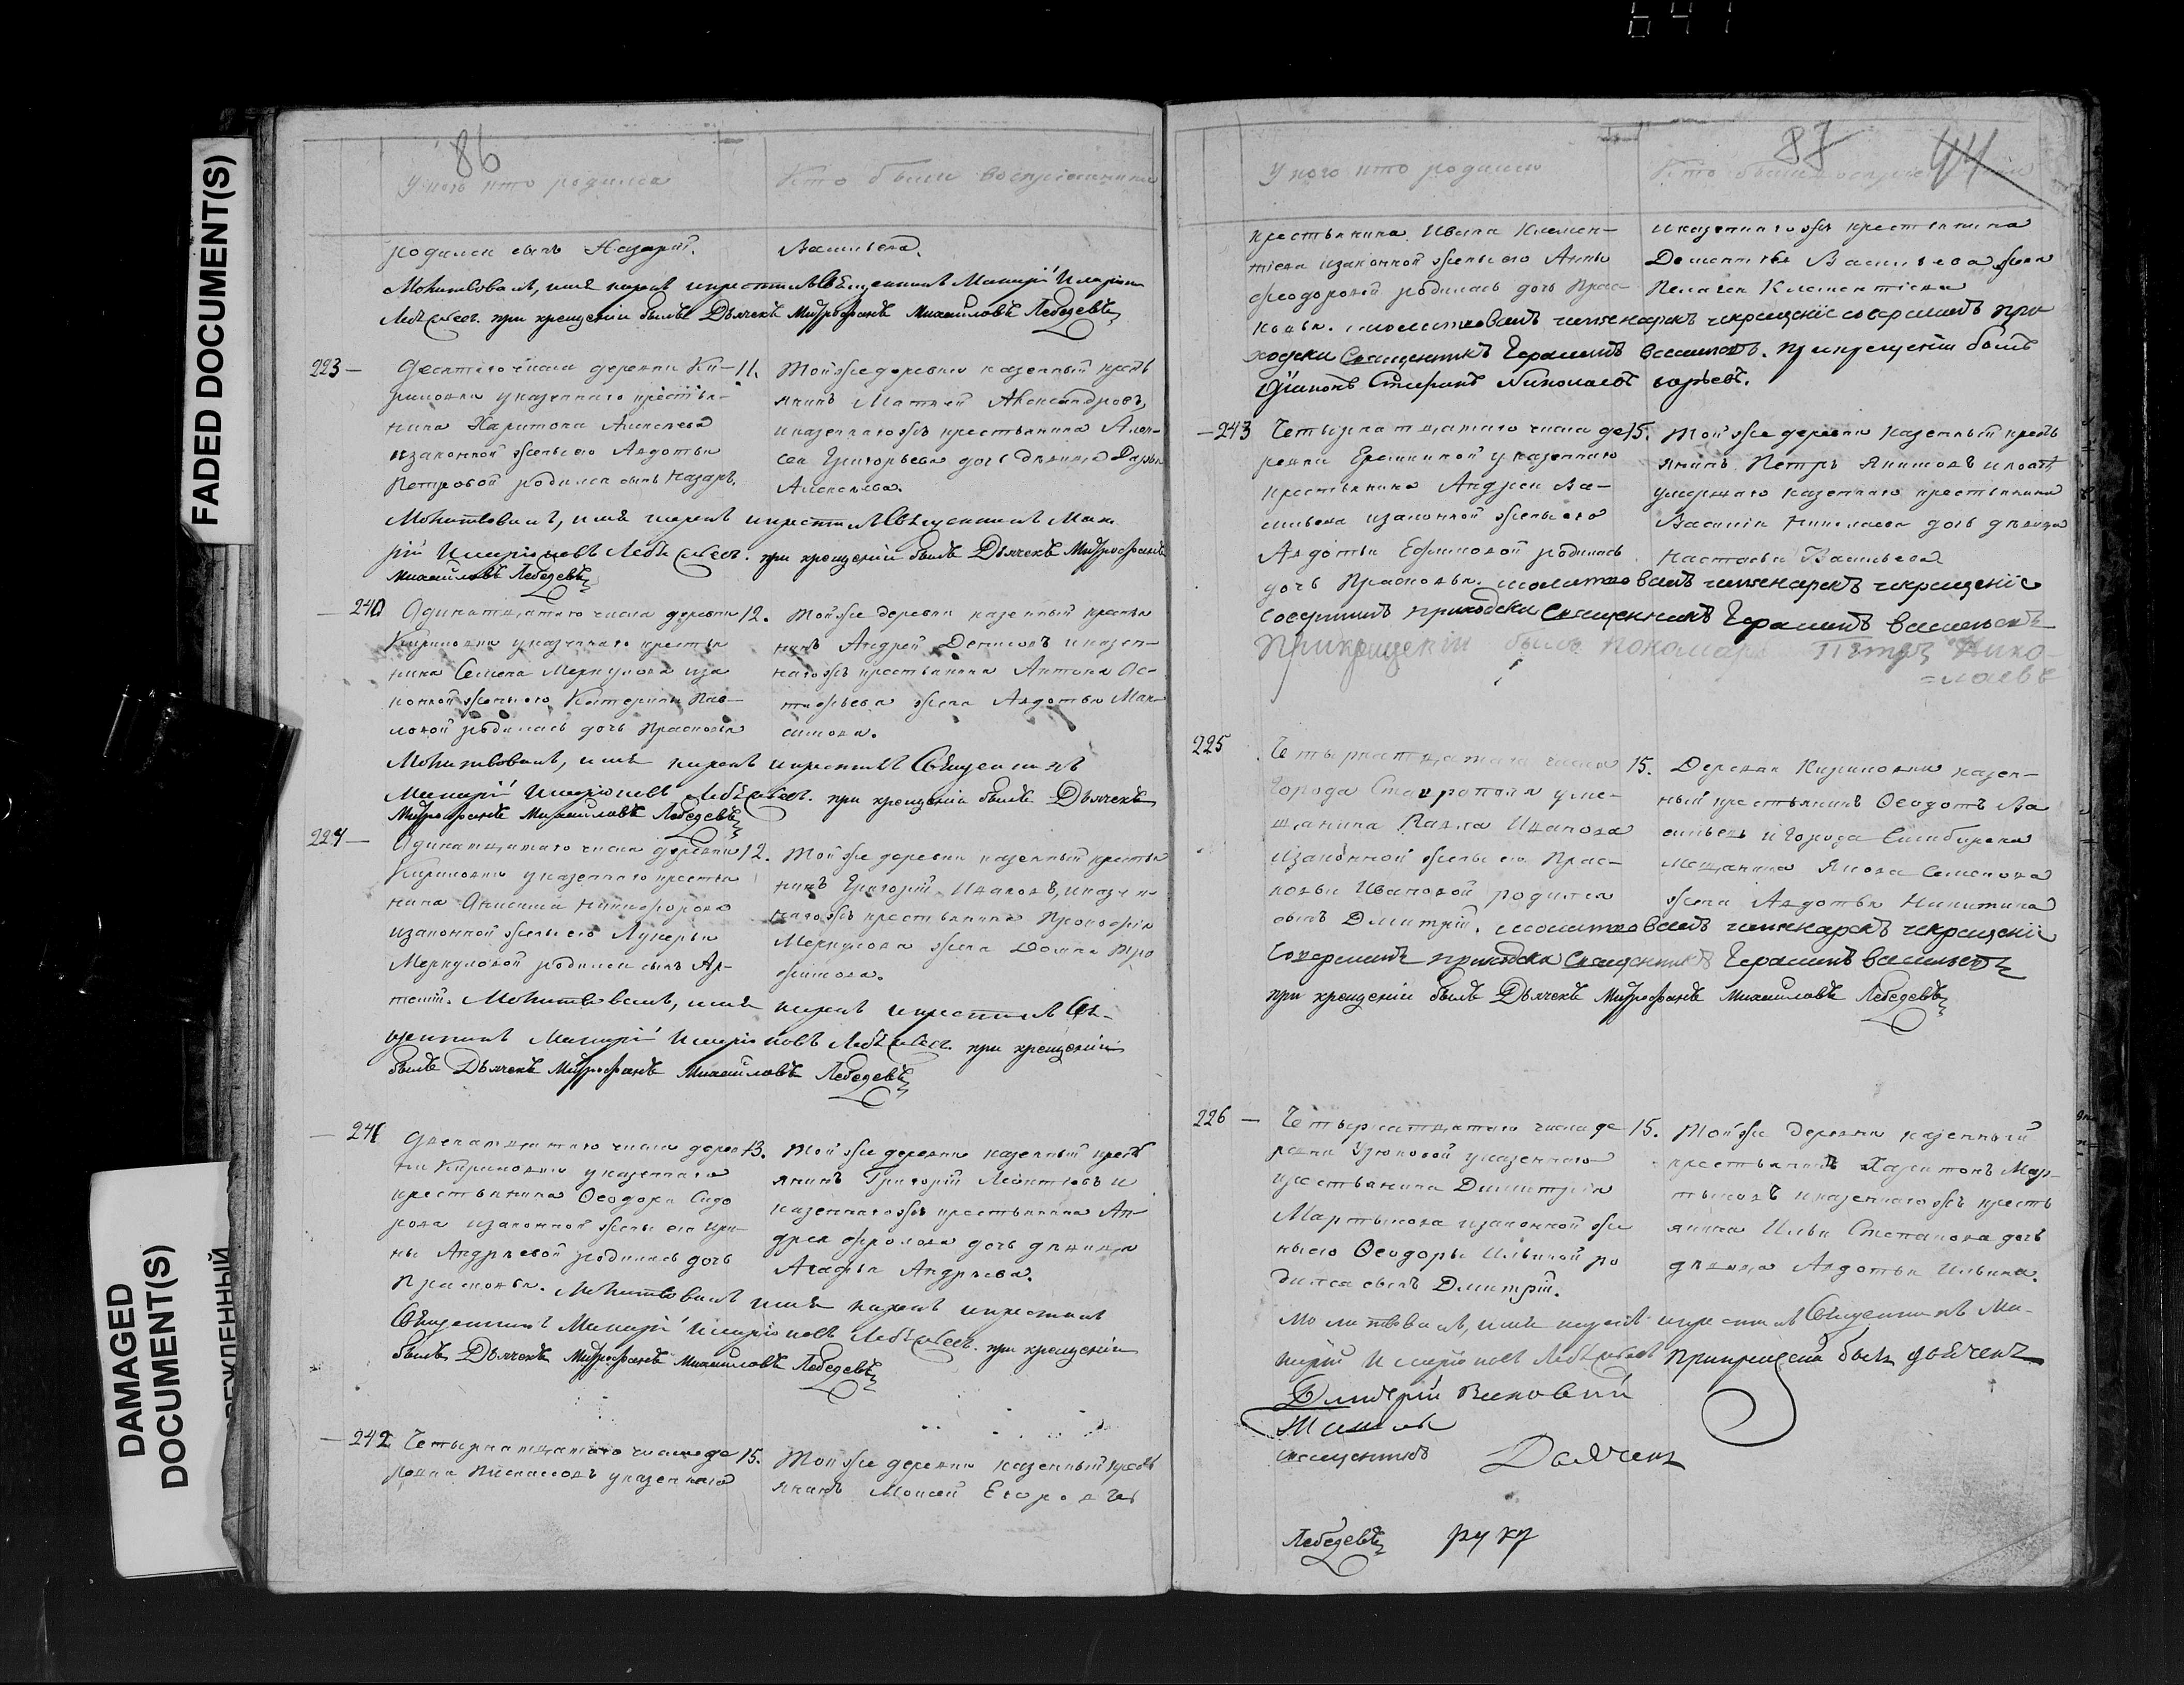 641
FADED DOCUMENT(S)
DAMAGED
DOCUMENT(S)
86
У кого кто родился
Кто были восприемники
родился сынъ Назарій.
Васильева.
Молитвовалъ, имя нарекъ и крестилъ Священникъ Макарій Иларіоновъ
Лебедевъ. при крещеніи былъ Дьячекъ Митрофанъ Михайловъ Лебедевъ
223
Десятаго числа деревни Ки-
риловки у казеннаго крестья-
нина Харитона Алексеева
и законной жены его Авдотьи
Петровой родился сынъ Назаръ.
11.
Той же деревни казенный кресть
янинъ Матвей Александровъ,
и казеннаго жъ крестьянина Алек-
сея Григорьева дочь девица Дарья
Алексеева.
Молитвовалъ, имя нарекъ и крестилъ Священникъ Мака
рій Иларіоновъ Лебедевъ. при крещеніи былъ Дьячекъ Митрофанъ
Михайловъ Лебедевъ
240
Одинатцатаго числа деревни
Кириловки у казеннаго крестья
нина Семена Меркулова и за
конной жены его Катерины Пав-
ловой родилась дочь Прасковья
12.
Той же деревни казенный крестья
нинъ Андрей Денисовъ и казен-
наго жъ крестьянина Антона
жена Авдотья Мак-
симова.
Молитвовалъ, имя нарекъ и крестилъ Священникъ
Макарій Иларіоновъ Лебедевъ. при крещеніи былъ Дьячекъ
Митрофанъ Михайловъ Лебедевъ
224
Одинатцатаго числа деревни
Кириловки у казеннаго крестья
нина Анисима Никифорова
и законной жены его Лукерьи
Меркуловой родился сынъ Ар-
темій.
12.
Той же деревни казенный крестья
нинъ Григорій Ивановъ, и казен
наго жъ крестьянина Прокофія
Меркулова жена Домна Тро
фимова.
Молитвовалъ, имя нарекъ и крестилъ Свя-
щенникъ Макарій Иларіоновъ Лебедевъ. при крещеніи
былъ Дьячекъ Митрофанъ Михайловъ Лебедевъ
241
Двенатцатаго числа дерев
ни Кириловки у казеннаго
крестьянина Ѳеодора Сидо
рова и законной жены его Ири-
ны Андреевой родилась дочь
Прасковья.
13.
Той же деревни казенный кресть
янинъ Григорій Леонтьевъ и
казеннаго жъ крестьянина Ан-
дрея Фролова дочь девица
Агафья Андреева.
Молитвовалъ имя нарекъ и крестилъ
Священникъ Макарій Иларіоновъ Лебедевъ. при крещеніи
былъ Дьячекъ Митрофанъ Михайловъ Лебедевъ
242
Четырнатцатаго числа де
ревни у казеннаго
15.
Той же деревни казенный кресть
янинъ Моисей Егоровъ
87
44
У кого кто родился
Кто были восприемники
крестьянина Ивана Клемен-
тіева и законной жены его Анны
Феодоровой родилась дочь Прас-
ковья.
и казеннаго жъ крестьянина
Дементья Васильева жена
Пелагея Клементіева
молитвовалъ имя нарекъ и крещеніе совершилъ при
ходски Священникъ Герасимъ Васильевъ. При крещеніи былъ
Дїаконъ Стефанъ Николаевъ
243
Четырнатцатаго числа де
ревни Еремкиной у казеннаго
крестьянина Андрея Ва-
сильева и законной жены его
Авдотьи Ефимовой родилась
дочь Прасковья.
15.
Той же деревни казенный кресть
янинъ Петръ Якимовъ и
умершаго казеннаго крестьянина
Василія Николаева дочь девица
Настасья Васильева
молитвовалъ имя нарекъ и крещеніе
совершилъ приходски Священникъ Герасимъ Васильевъ
При крещеніи былъ Пономарь Петръ Нико-
=лаевъ
225
Четырнатцатаго числа
Города Ставрополя у ме-
щанина Павла Иванова
и законной жены его Прас-
ковьи Ивановой родился
сынъ Дмитрій.
15.
Деревни Кириловки казен-
ный крестьянинъ Ѳеодотъ Ва
сильевъ и Города Симбирска
мещанина Якова Семенова
жена Авдотья Никитина
молитвовалъ имя нарекъ и крещеніе
совершилъ приходски Священникъ Герасимъ Васильевъ
при крещеніи былъ Дьячекъ Митрофанъ Михайловъ Лебедевъ
226
Четырнатцатаго числа де
ревни Узюковой у казеннаго
крестьянина Димитрія
Мартынова и законной же
ны его Ѳеодоры Ильиной ро
дился сынъ Дмитрій.
15.
Той же деревни казенный
крестьянинъ Харитонъ Мар-
тыновъ и казеннаго жъ кресть
янина Ильи Степанова дочь
девица Авдотья Ильина.
Молитвовалъ, имя нарекъ и крестилъ Священникъ Ма-
карій Иларіоновъ Лебедевъ при крещеніи былъ дьячекъ
Дмитрій
священникъ
Дьячекъ
Лебедевъ
руку